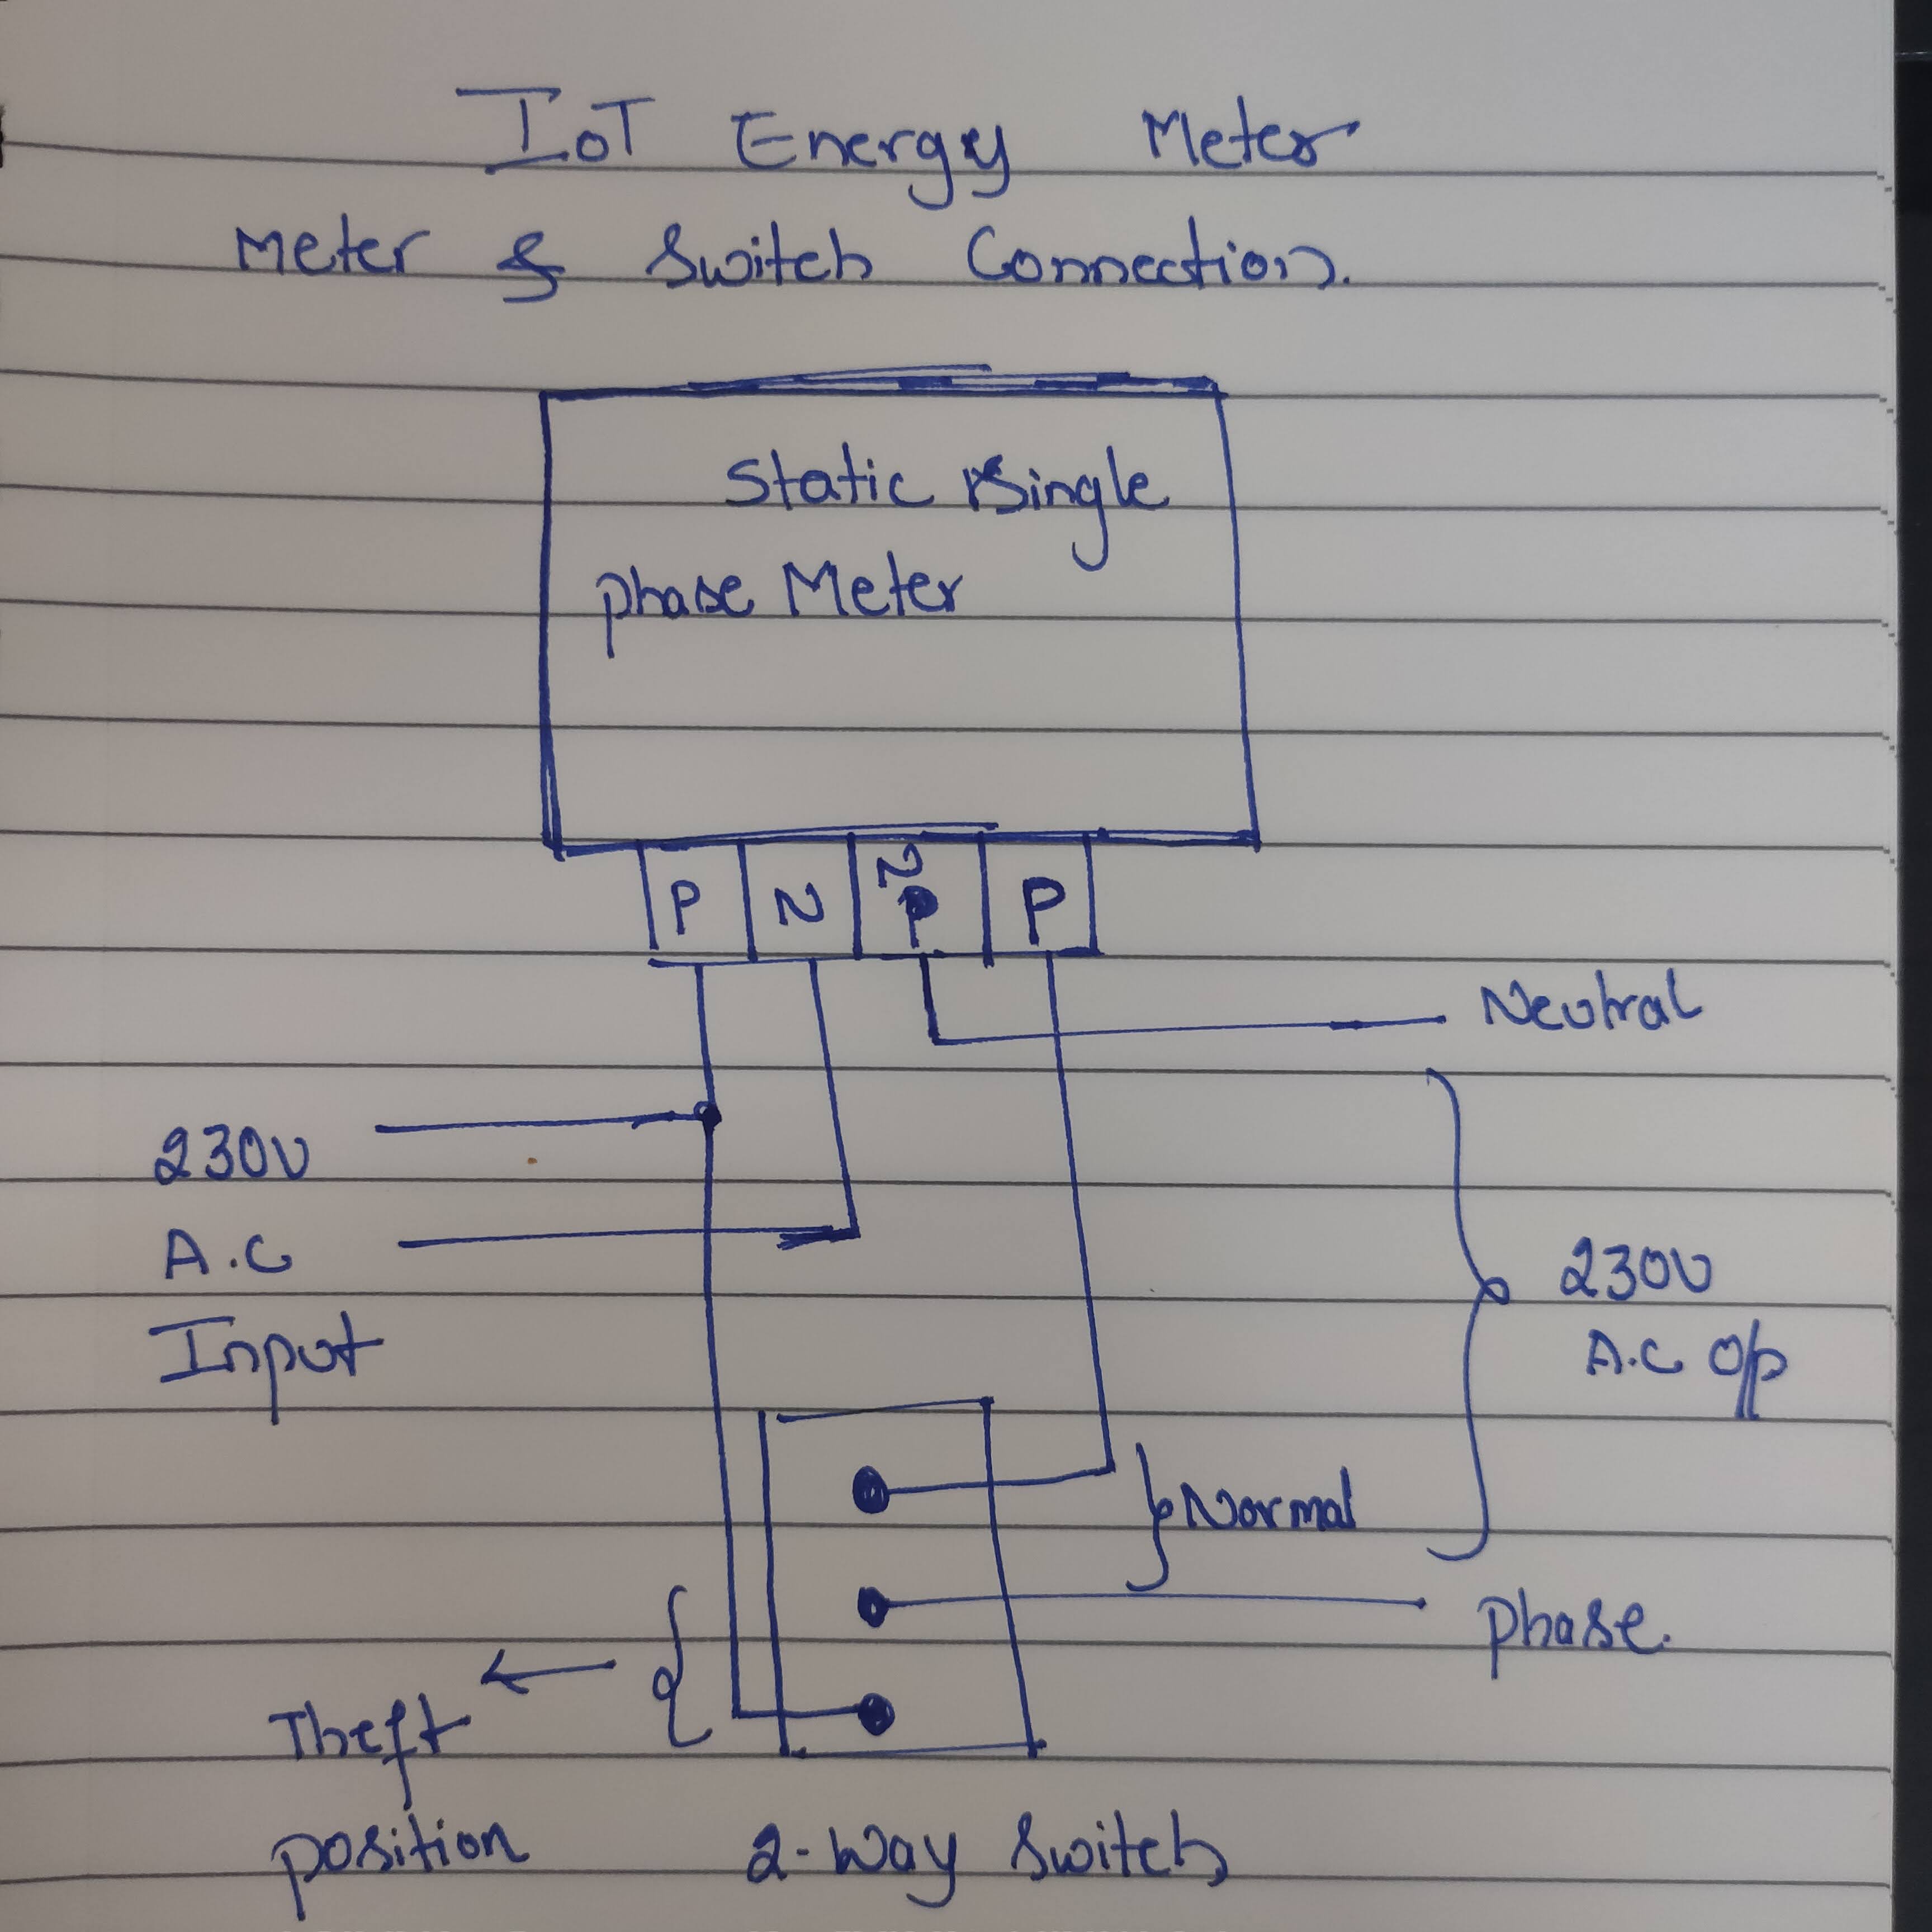 IoT Energy Meter
Meter & Switch Connection.
Static Single
phase Meter
P N N P
Neutral
230V
A.C
Input
230V
A.C O/p
Normal
Phase.
Theft
position
2-Way Switch